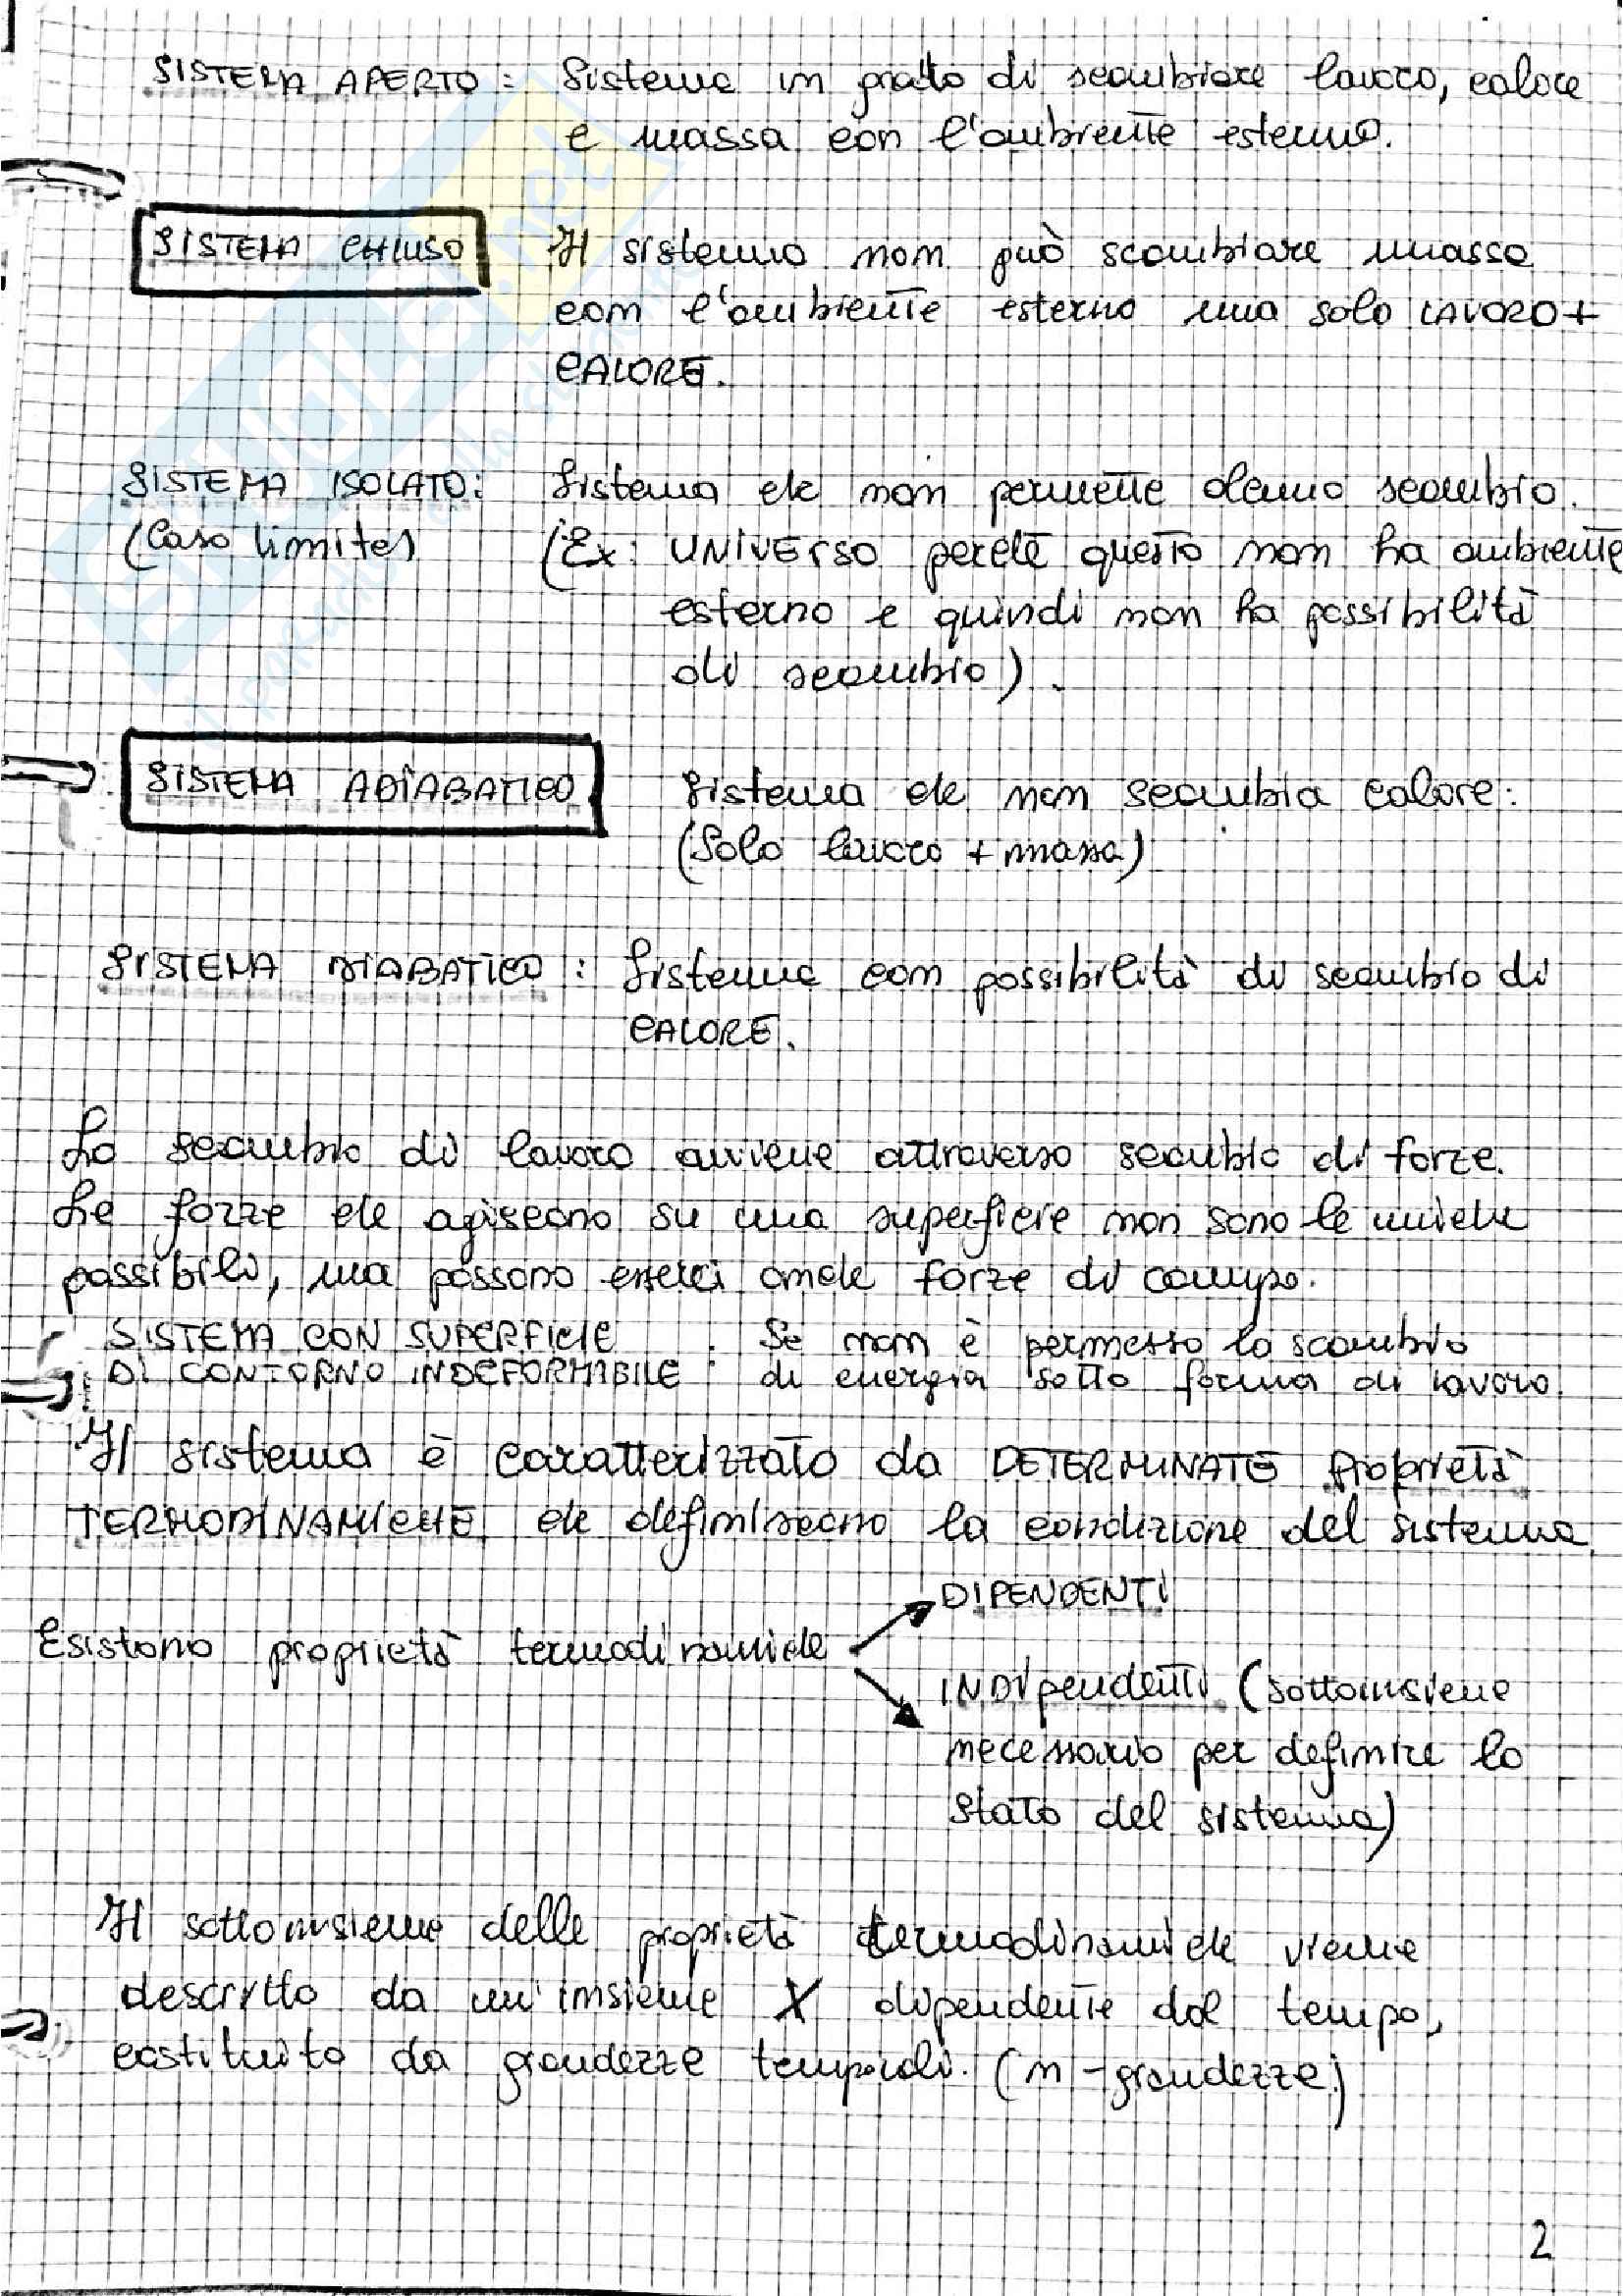 SISTEMA APERTO: Sistema in grado di scambiare lavoro, calore
e massa con l'ambiente esterno.
SISTEMA CHIUSO Il sistema non può scambiare massa
con l'ambiente esterno ma solo LAVORO +
CALORE.
SISTEMA ISOLATO: Sistema che non permette alcuno scambio.
(Caso limite) (Ex: UNIVERSO perché questo non ha ambiente
esterno e quindi non ha possibilità
di scambio).
SISTEMA ADIABATICO Sistema che non scambia calore:
(Solo lavoro + massa)
SISTEMA DIABATICO: Sistema con possibilità di scambio di
CALORE.
Lo scambio di lavoro avviene attraverso scambio di forze.
Le forze che agiscono su una superficie non sono le uniche
possibili, ma possono esserci anche forze di campo.
SISTEMA CON SUPERFICIE : Se non è permesso lo scambio
DI CONTORNO INDEFORMABILE di energia sotto forma di lavoro.
Il sistema è caratterizzato da DETERMINATE proprietà
TERMODINAMICHE che definiscono la condizione del sistema.
DIPENDENTI
Esistono proprietà termodinamiche
INDipendenti (sottoinsieme
necessario per definire lo
stato del sistema)
Il sottoinsieme delle proprietà termodinamiche viene
descritto da un'insieme X dipendente dal tempo,
costituito da grandezze temporali. (n-grandezze)
2